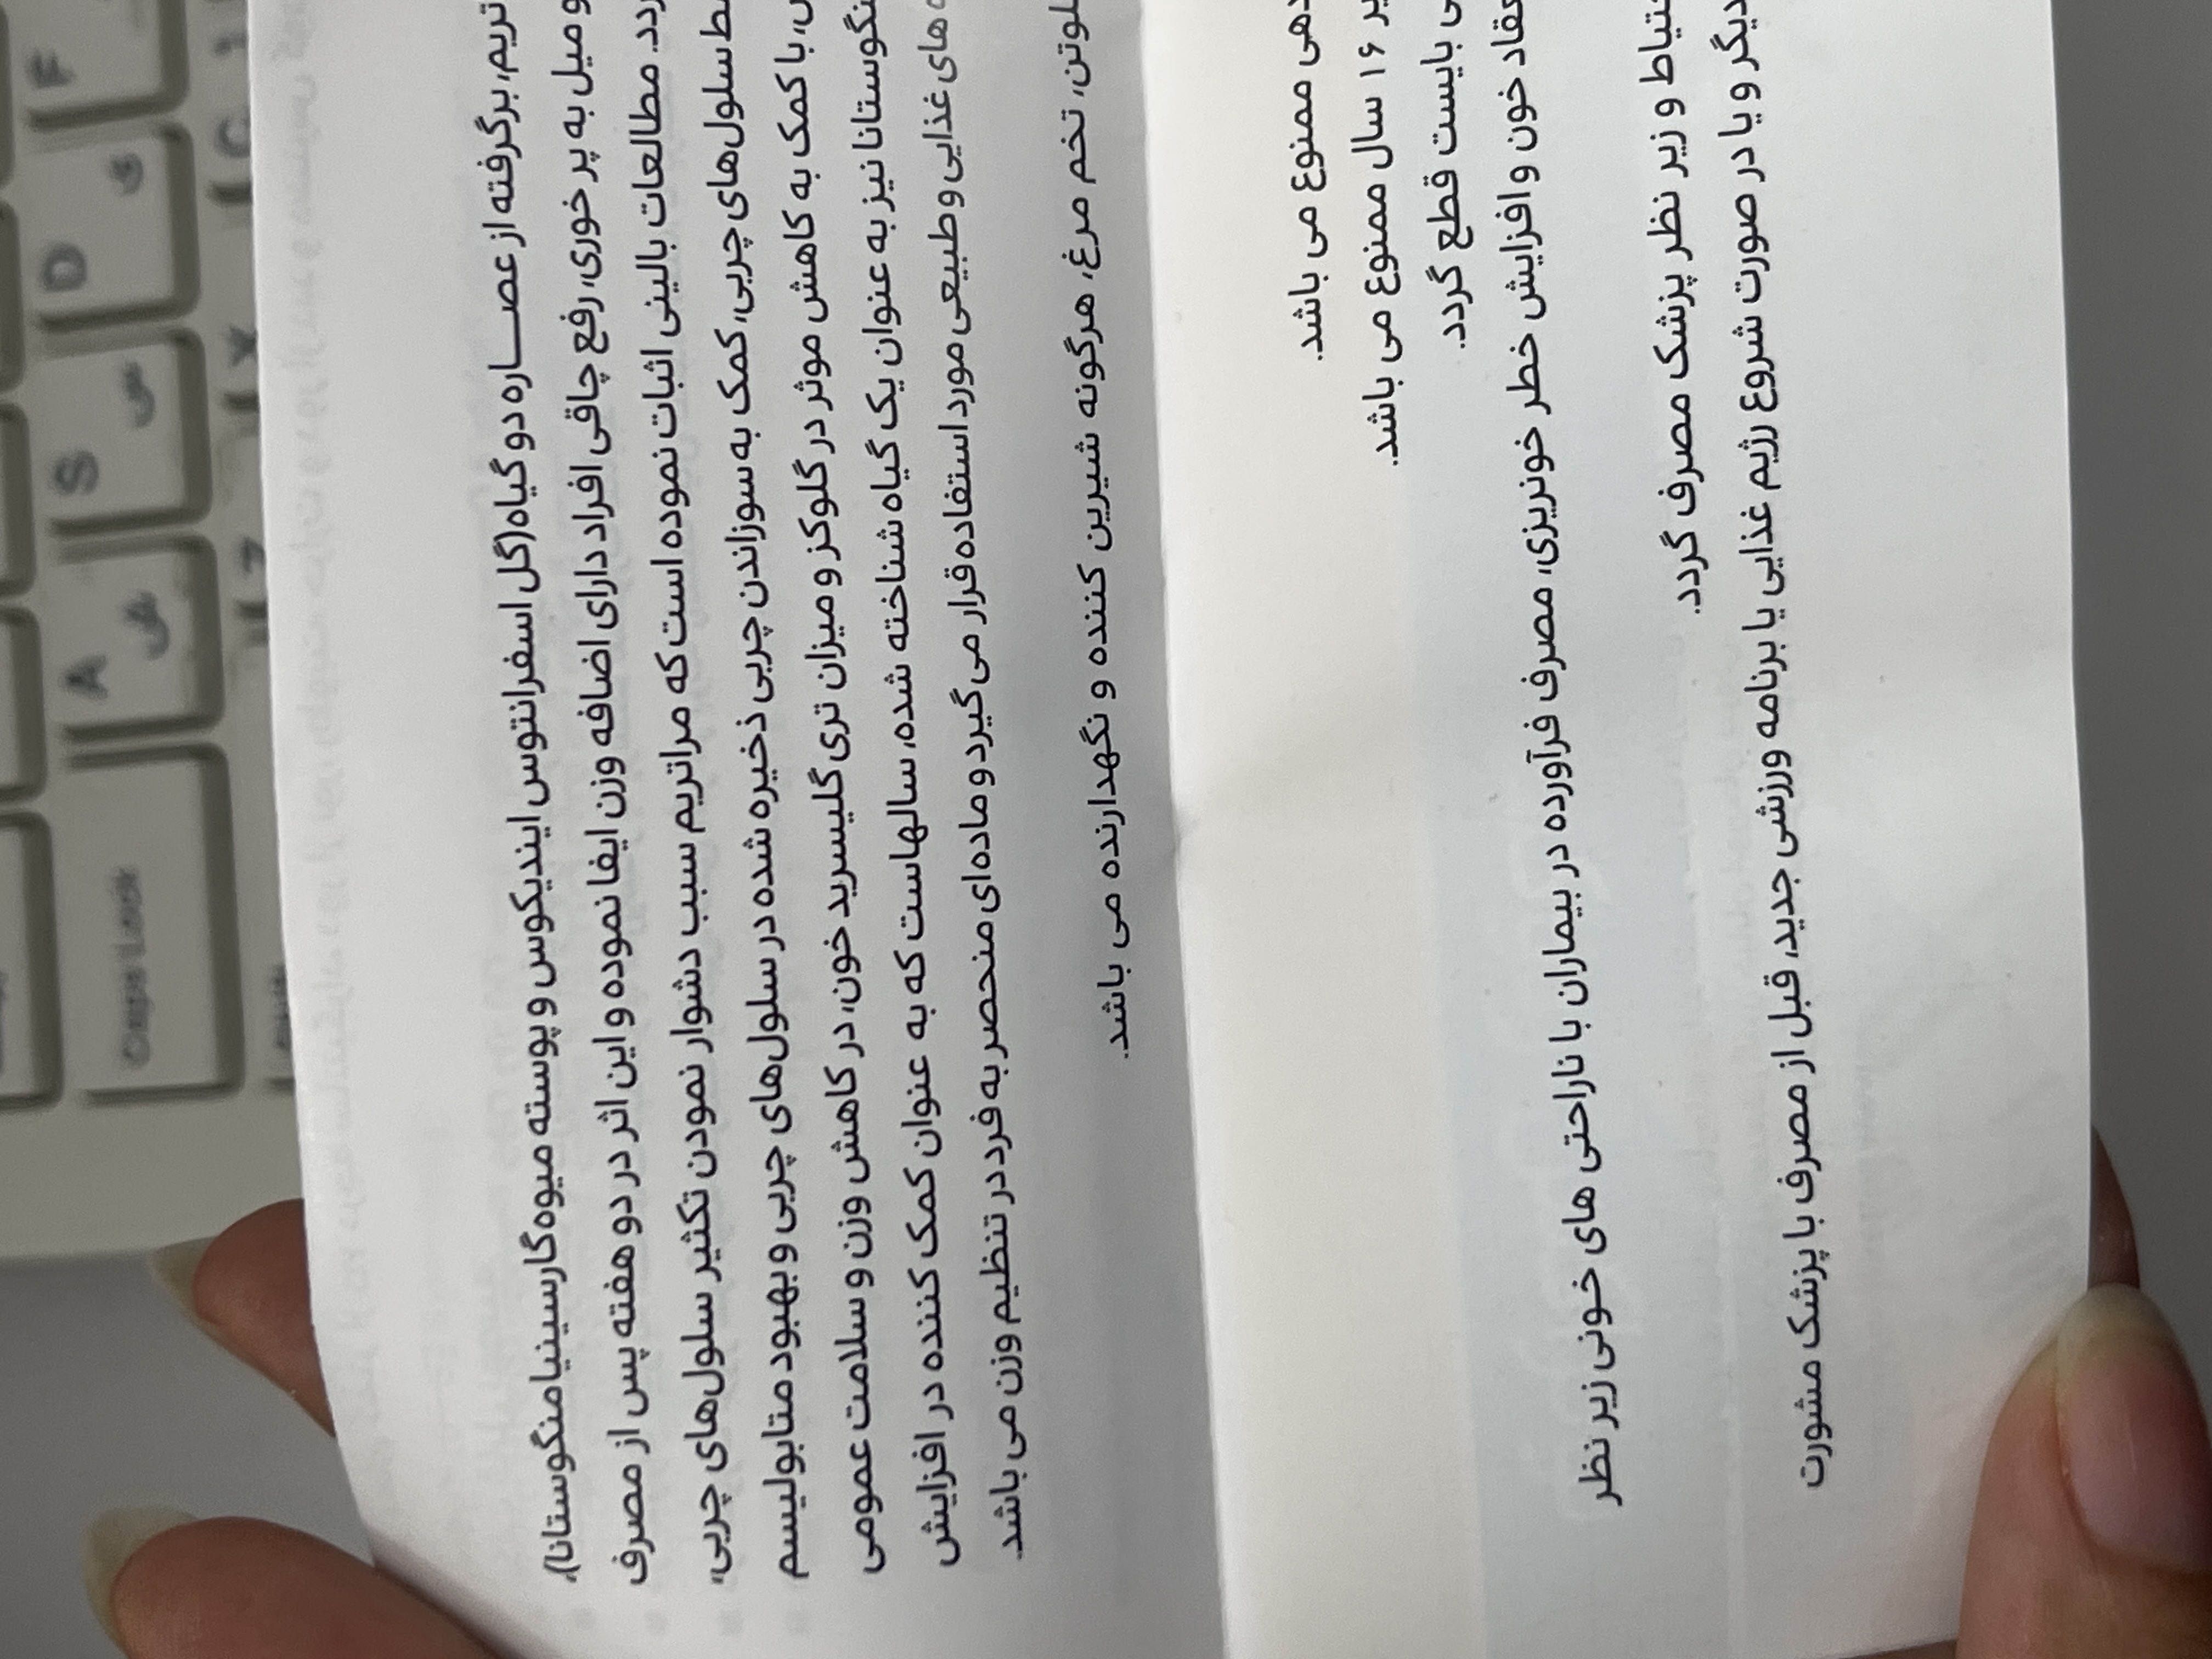 برگرفته از عصاره دو گیاه (گل اسفرانتوس ایندیکوس و پوسته میوه گارسینیا منگوستانا)،
میل به پر خوری، رفع چاقی افراد دارای اضافه وزن ایفا نموده و این اثر در دو هفته پس از مصرف
مطالعات بالینی اثبات نموده است که مراتریم سبب دشوار نمودن تکثیر سلول‌های چربی،
سلول‌های چربی، کمک به سوزاندن چربی ذخیره شده در سلول‌های چربی و بهبود متابولیسم
با کمک به کاهش موثر در گلوکز و میزان تری گلیسرید خون، در کاهش وزن و سلامت عمومی
نیز به عنوان یک گیاه شناخته شده، سالهاست که به عنوان کمک کننده در افزایش
های غذایی و طبیعی مورد استفاده قرار می گیرد و ماده‌ای منحصر به فرد در تنظیم وزن می باشد.
تخم مرغ، هرگونه شیرین کننده و نگهدارنده می باشد.
ممنوع می باشد.
۱۶ سال ممنوع می باشد.
بایست قطع گردد.
خون و افزایش خطر خونریزی، مصرف فرآورده در بیماران با ناراحتی های خونی زیر نظر
و زیر نظر پزشک مصرف گردد.
و یا در صورت شروع رژیم غذایی یا برنامه ورزشی جدید، قبل از مصرف با پزشک مشورت
F
D ی
S س
A ش
Caps Lock
C
X
Z